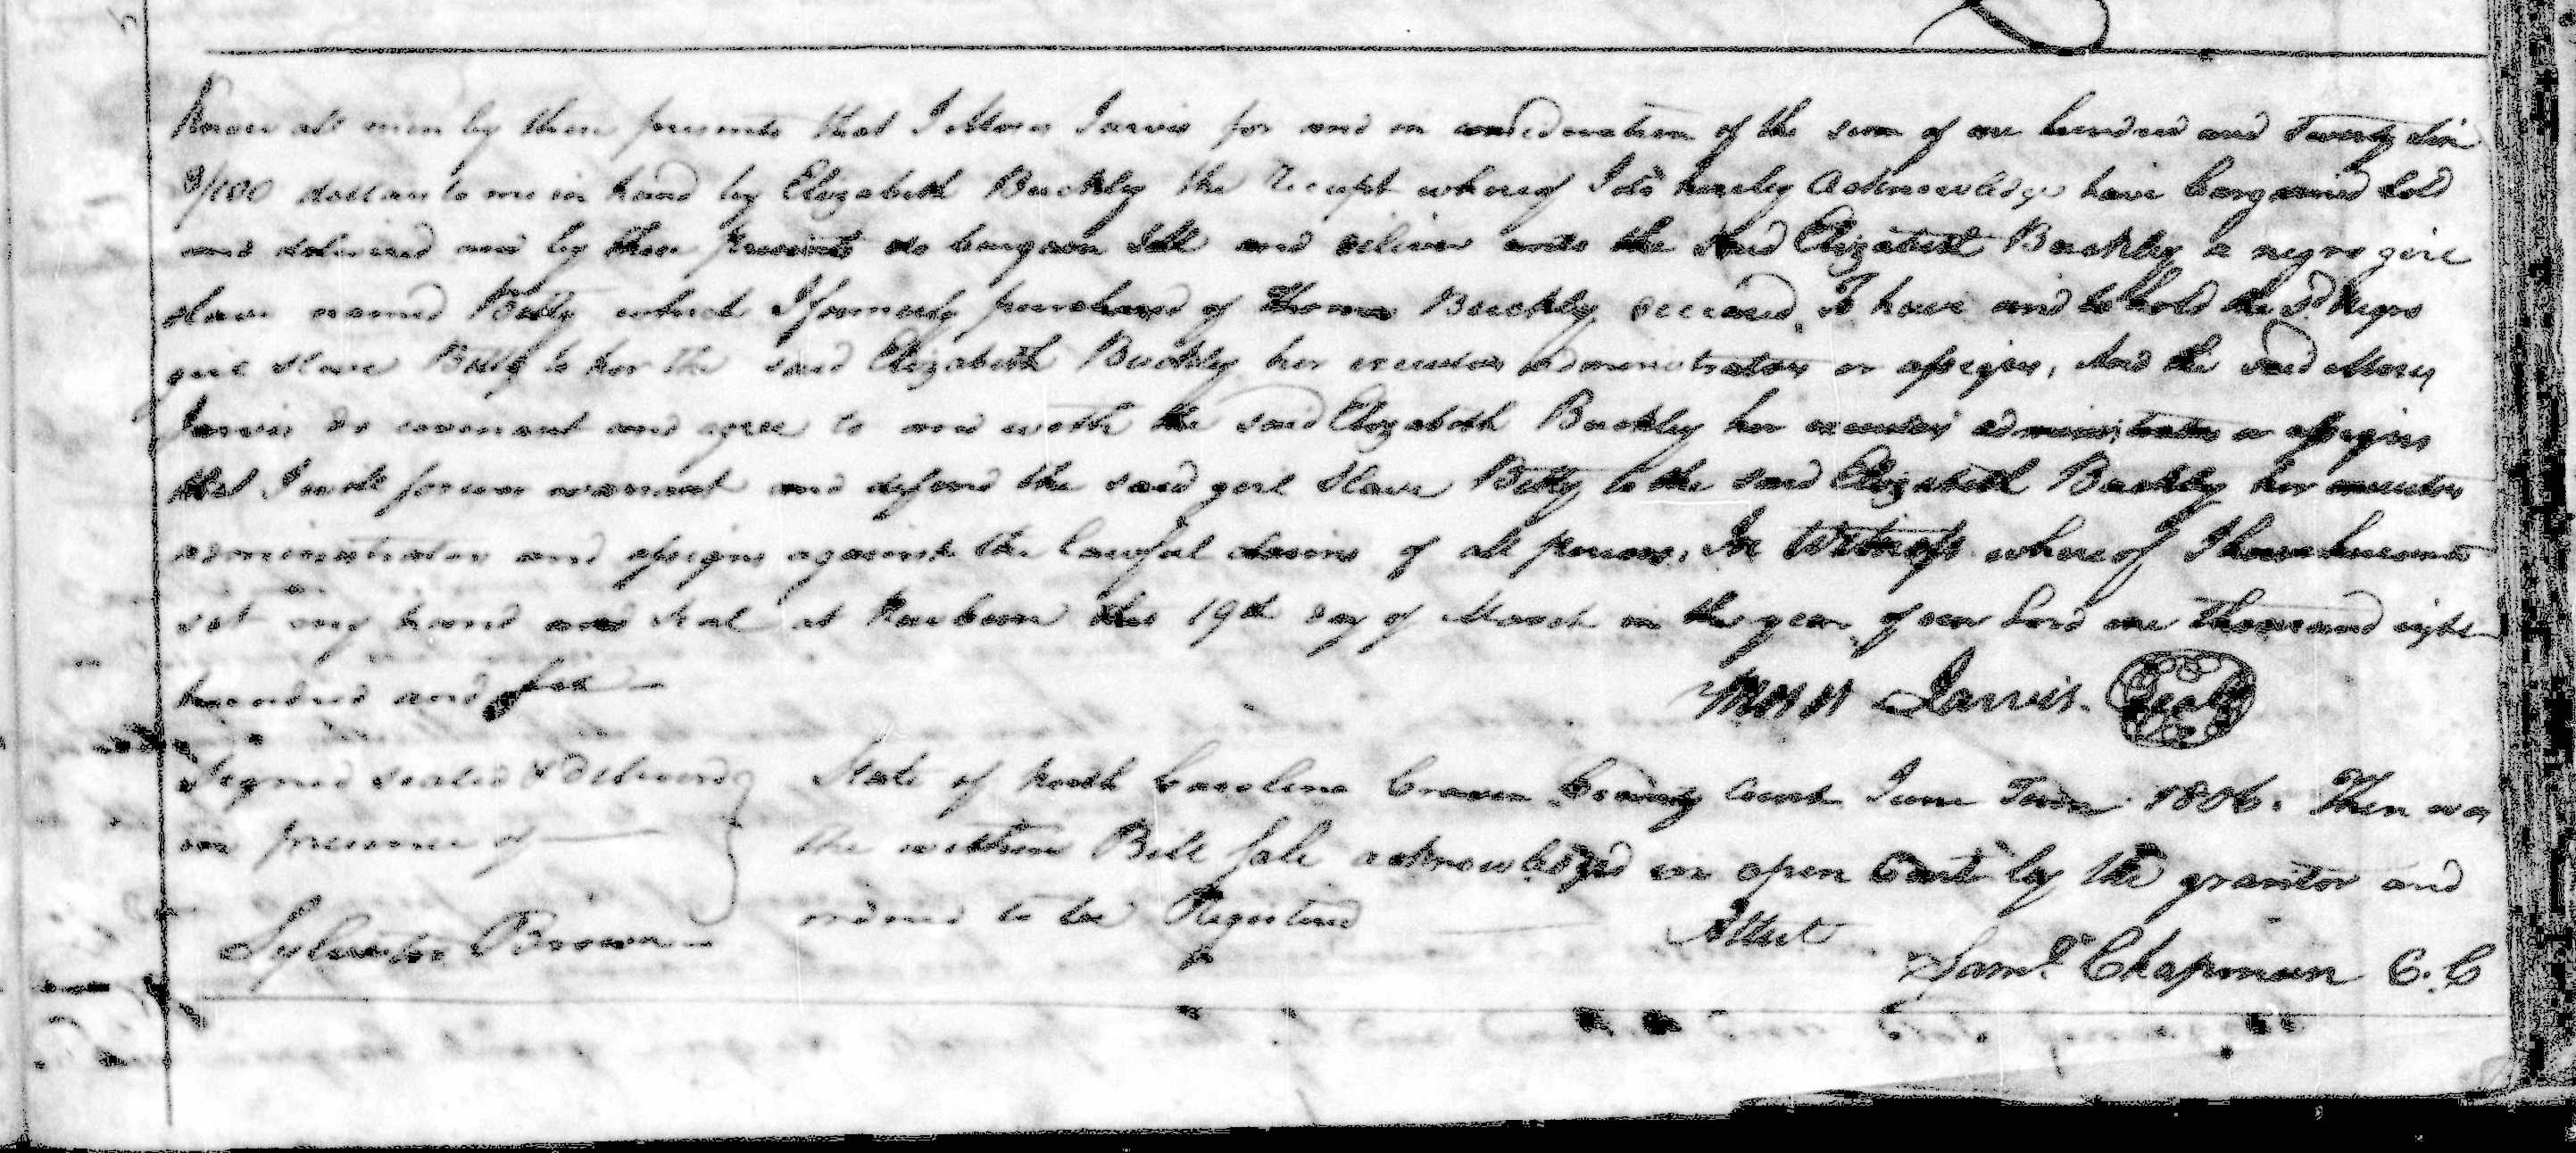 Know all men by these presents that I Moses Jarvis for and in consideration of the sum of one hundred and Twenty Six
8/100 dollars to me in hand by Elizabeth Buckley the receipt whereof I do hereby acknowledge have bargained sold
and delivered and by these presents do bargain sell and deliver unto the said Elizabeth Buckley a negro girl
slave named Betty which I formerly purchased of Thomas Buckley deceased, To have and to hold the sd. Negro
girl slave Betty to her the said Elizabeth Buckley her executors administrators or assigns, And the said Moses
Jarvis do covenant and agree to and with the said Elizabeth Buckley her executors administrators or assigns
that I will forever warrant and defend the said girl slave Betty to the said Elizabeth Buckley her executors
administrators and assigns against the lawful claims of all persons, In Witness whereof I have hereunto
set my hand and seal at Newbern this 19th day of March in the year of our Lord one thousand eight
hundred and six
Moses Jarvis. Seal
Signed sealed & Delivered
in presence of
Sylvester Brown
State of North Carolina Craven County Court June Term 1806. Then was
the within Bill Sale acknowledged in open Court by the grantor and
ordered to be Registered
Attest
Saml. Chapman C. C